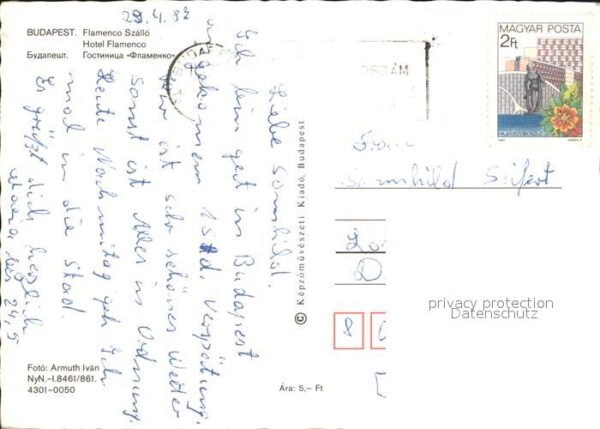 29.4.87
BUDAPEST. Flamenco Szálló
Hotel Flamenco
Будапешт. Гостиница «Фламенко»
Liebe Sonnhild.
Ich bin gut in Budapest
angekommen 1 Std. Verspätung.
Hier ist sehr schönes Wetter
sonst ist Alles in Ordnung.
Heute Nachmittag geh Ich
mal in die Stad.
Es grüßt dich herzlich
bis 24,5
Fotó: Armuth Iván
NyN.–I.8461/861.
4301–0050
Ára: 5,– Ft
© Képzőművészeti Kiadó, Budapest
MAGYAR POSTA
2Ft
HAJDÚSZOBOSZLÓ
Frau
Sonnhild Seifert
privacy protection
Datenschutz